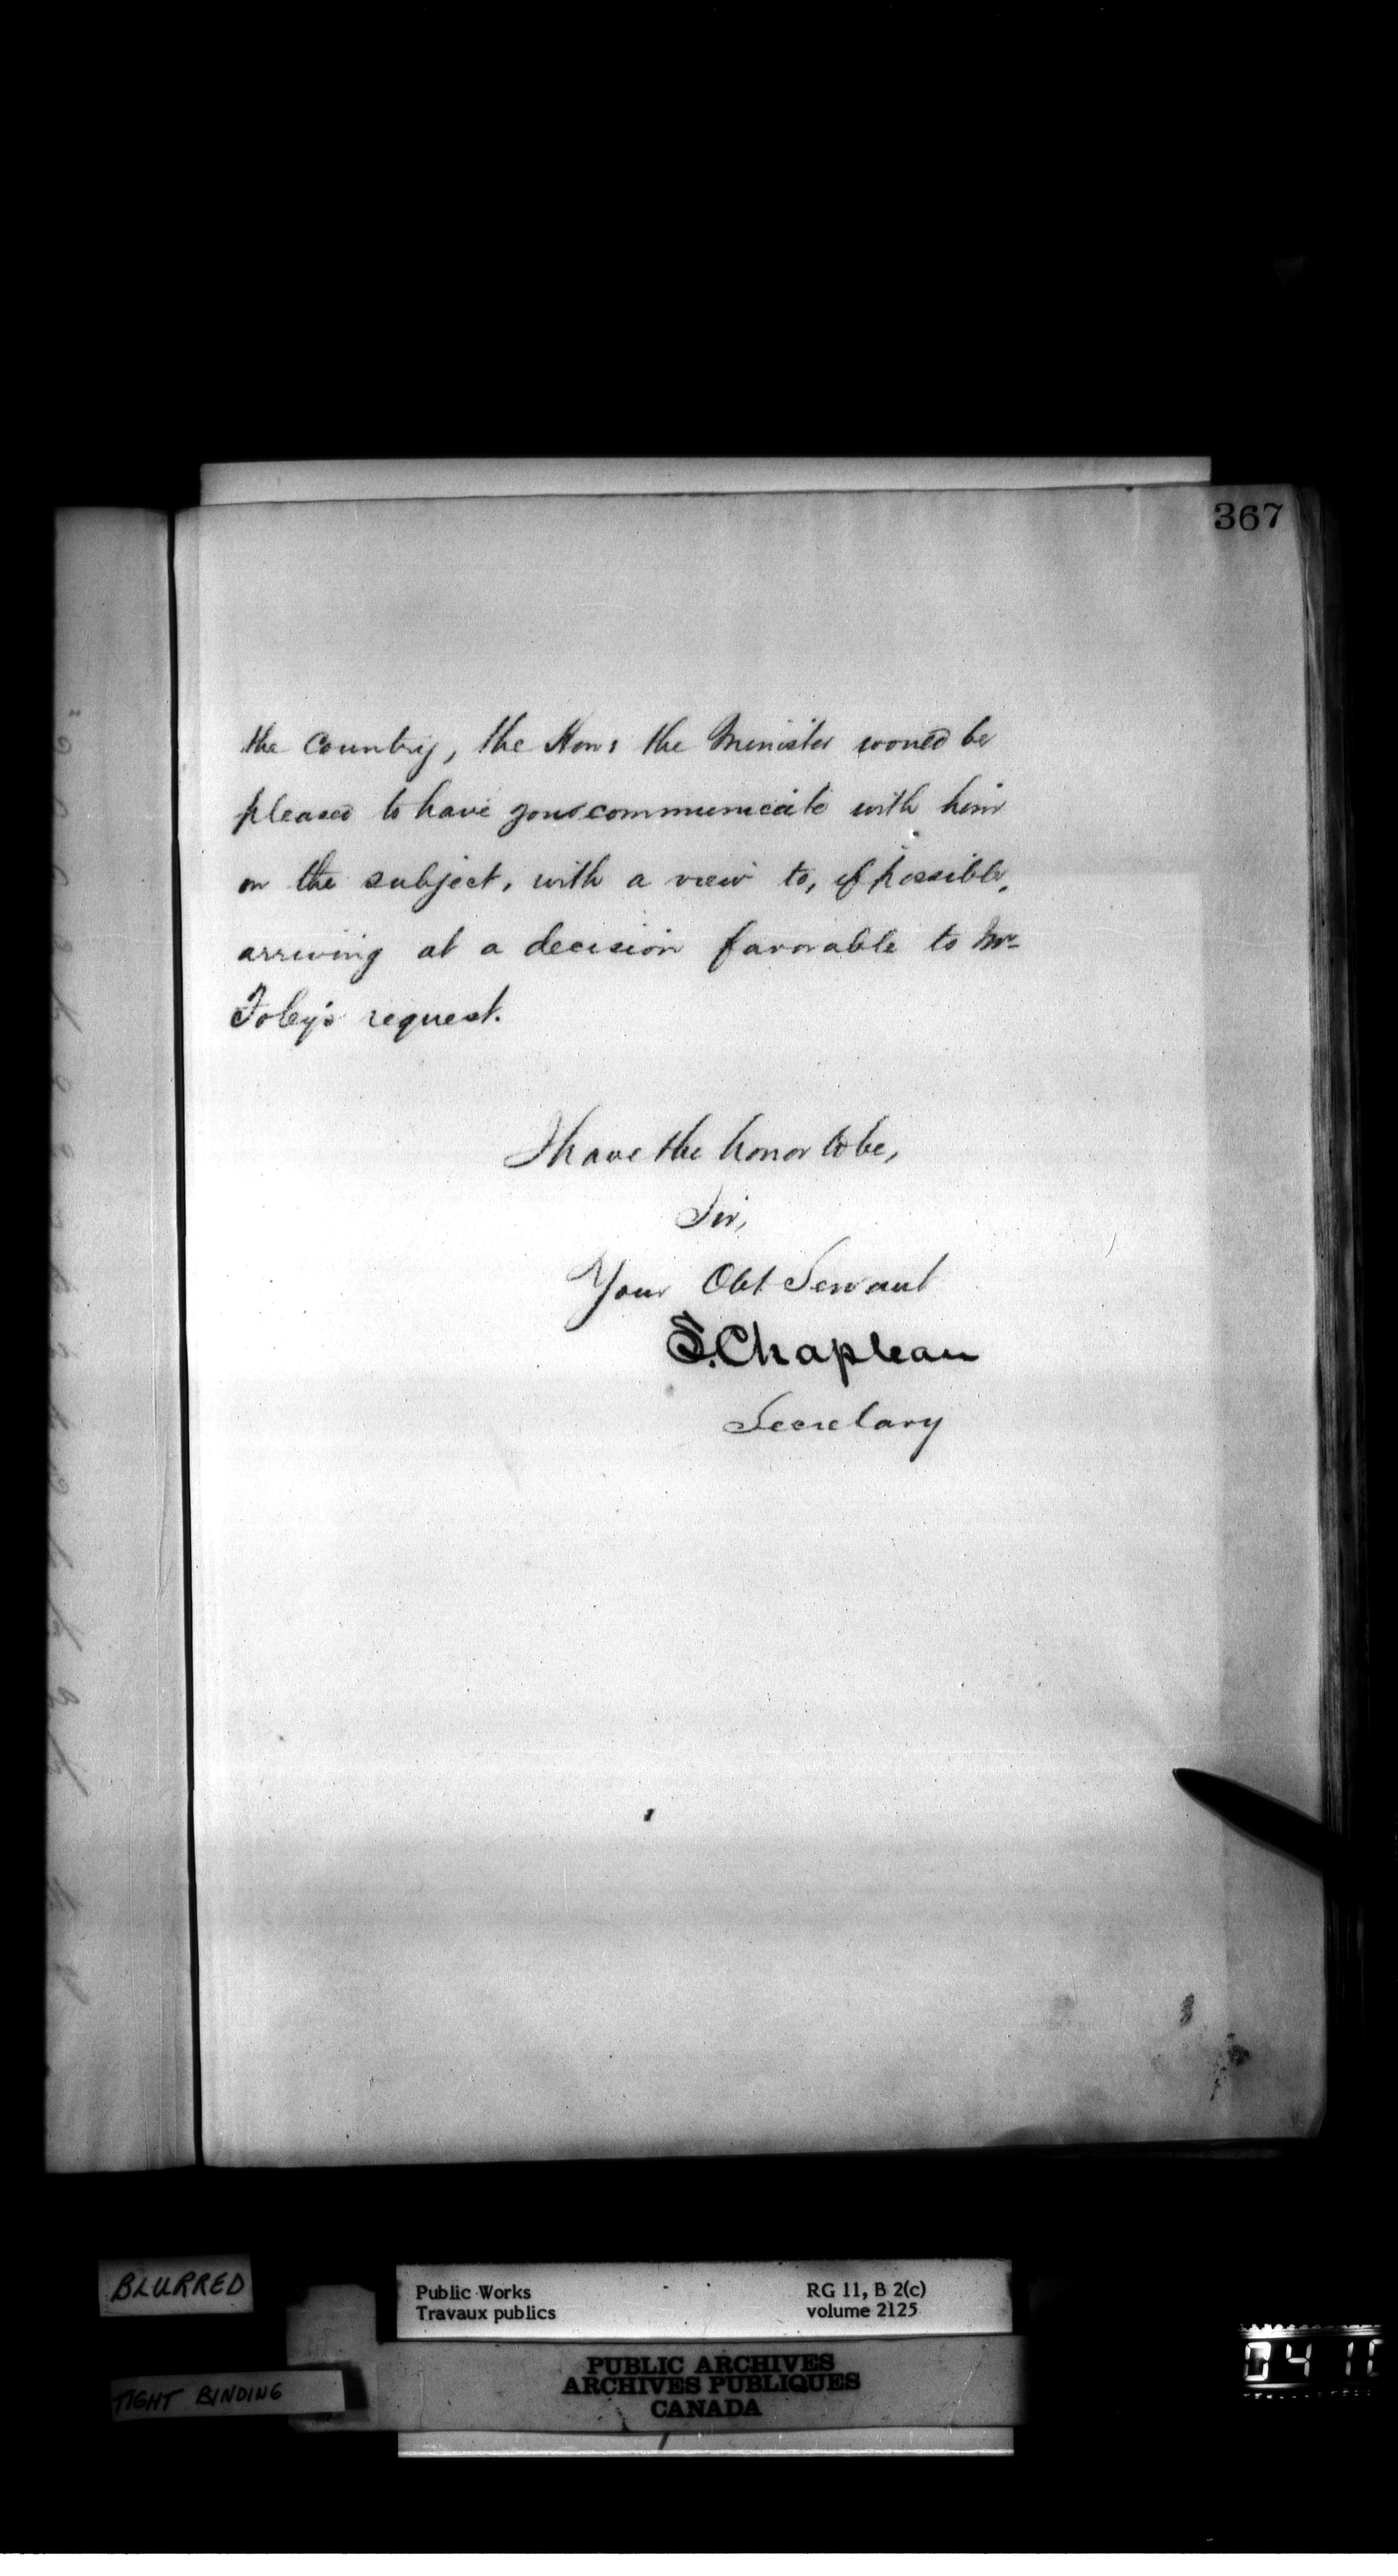 367
the Country, the Hon: the Minister would be
pleased to have you communicate with him
on the subject, with a view to, if possible,
arriving at a decision favorable to Mr
request.
I have the honor to be,
Sir,
Your Obt Servant
S. Chapleau
Secretary
BLURRED
TIGHT BINDING
Public Works
Travaux publics
RG 11, B 2(c)
volume 2125
PUBLIC ARCHIVES
ARCHIVES PUBLIQUES
CANADA